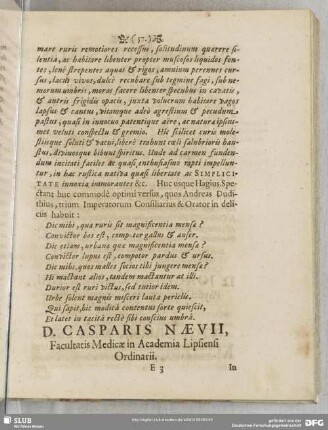 (37.)
mare ruris remotiores recessus, solitudinum quærere silentia, ac habitare libenter propter muscosos liquidos fontes, lenè strepentes aquas & rigos, amnium perennes cursus, lacus vivos, dulcè recubare sub tegmine fagi, sub nemorum umbris, moras facere libenter specubus in cavatis, & antris frigidis opacis, juxta volucrum habitare vagos lapsus & cantus, vitamque adeò agrestium & pecudum pastus, quasi in innocuo patentique aëre, ac natura ipsius met veluti conspectu & gremio. Hic scilicet curis molestiisque soluti & vacui, liberè tenbunt cœli salubrioris haustus, & divinosque bibunt spiritus. Unde ad carmen fundendum incitati facilè & quasi enthusiasmo rapti impelluntur, in hac rustica nativa quasi libertate ac SIMPLICITATE innoxia immorantes &c. Hucusque Hagius. Spectant huc commodè optimi versus, quos Andreas Dudithius, trium Imperatorum Consiliarius & Orator in deliciis habuit:
Dic mihi, qua ruris sit magnificentia mensæ?
Convictor bos est, compotor gallus & anser.
Dic etiam, urbanæ quæ magnificentia mensæ?
Convictor lupus est, compotor pardus & ursus.
Dic mihi, quos malles socios tibi jungere mensæ?
Hi mactant alios, tandem mactantur at illi.
Durior est ruri victus, sed tutior idem.
Urbe solent magnis misceri lauta periclis.
Qui sapit, hic modicâ contentus sorte quiescit,
Et latet in tacitâ rectè sibi conscius umbrâ.
D. CASPARIS NÆVII,
Facultatis Medicæ in Academia Lipsiensi
Ordinarii.
E 3
In
SLUB
Wir führen Wissen.
gefördert von der
Deutschen Forschungsgemeinschaft
DFG